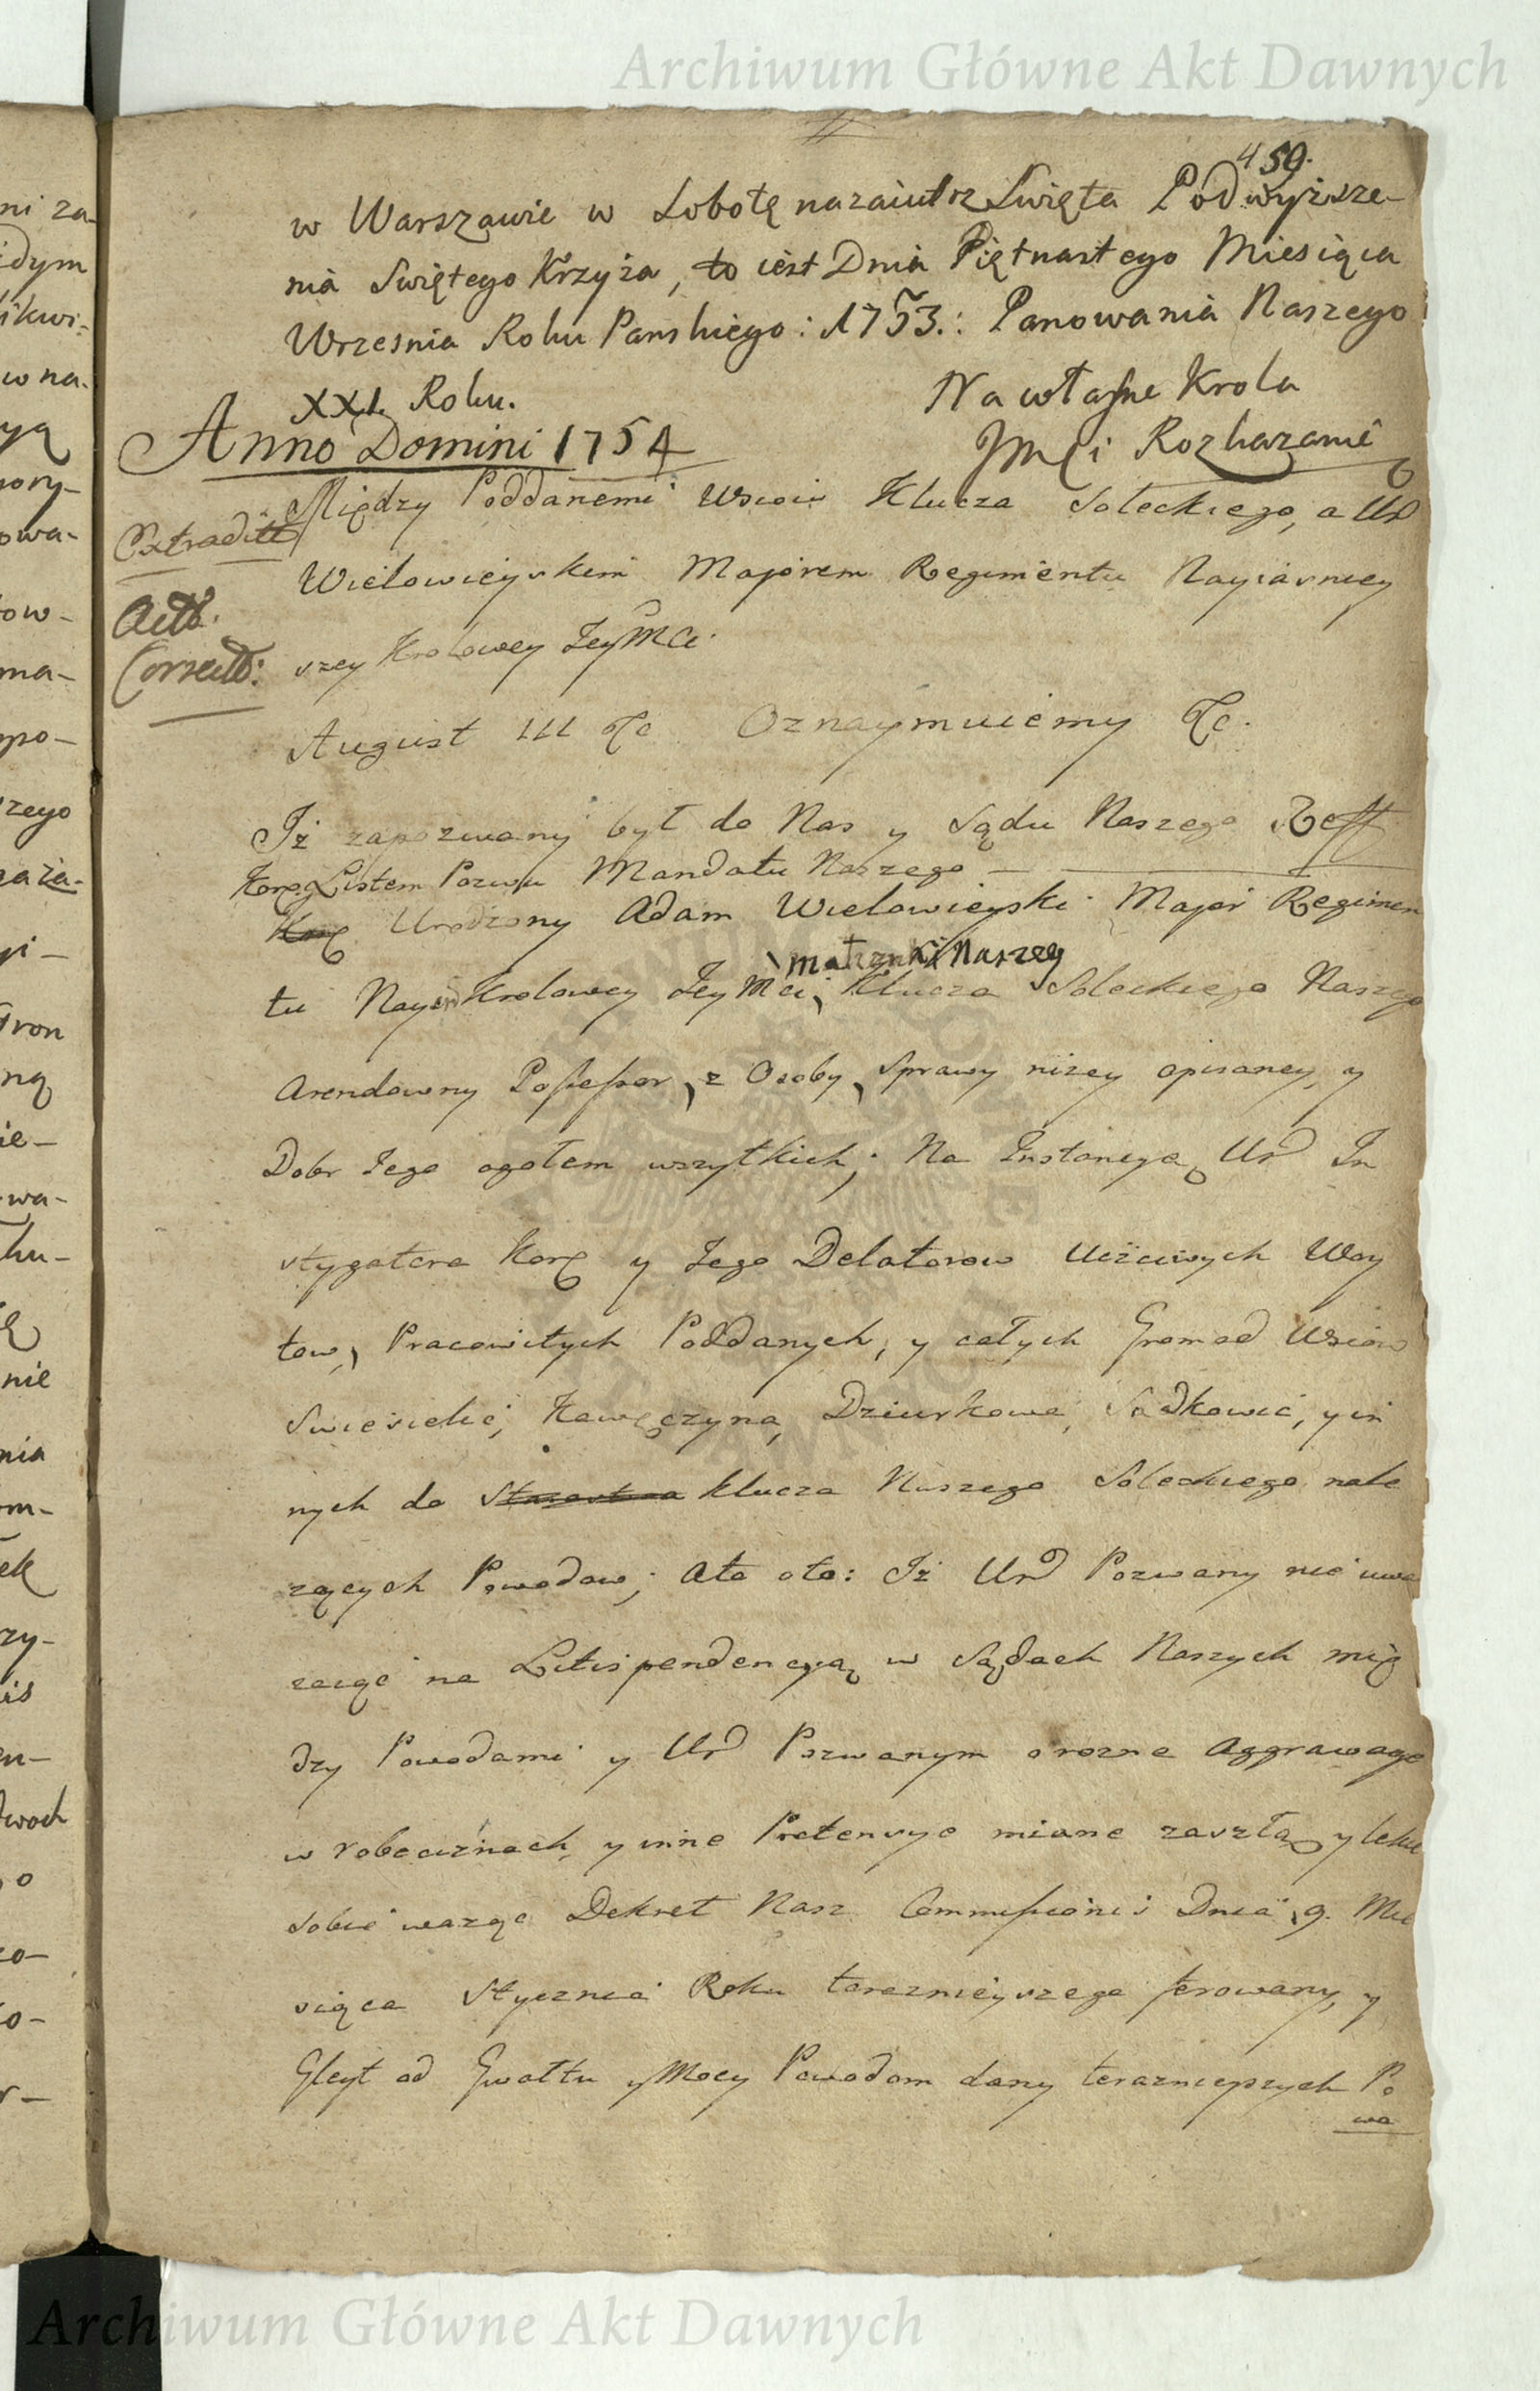 Archiwum Główne Akt Dawnych
459.
w Warszawie w Sobotę nazaiutrz Swięta Podwyzsze-
nia Swiętego Krzyża, to iest Dnia Piętnastego Miesiąca
Wrzesnia Roku Panskiego: 1753.: Panowania Naszego
XXI. Roku.
Na własne Krola
Jmci Rozkazanie
Anno Domini 1754
Między Poddanemi Wsiow Klucza Soleckiego, a Ur
Extradit
Wielowieyskim Majorem Regimentu Nayiasniey
Actt.
szey Krolowey JeyMci
Correctt:
August III &c Oznaymuiemy &c.
Iż zapozwany był do Nas y Sądu Naszego Reff
Kor. Listem Pozwu Mandatu Naszego
Kor Urodzony Adam Wielowieyski Major Regimen
matzonki Naszey
tu Nay Krolowey JeyMci, Klucza Soleckiego Naszego
Arendowny Possessor, z Osoby, Sprawy nizey opisaney, y
Dobr Jego ogołem wszytkich; Na Instancyą Ur In
stygatora Kor y Jego Delatorow Uczciwych Woy
tow, Pracowitych Poddanych, y całych Gromad Wsiow
Swiesielic, Kawęczyna, Dziurkowa, Sadkowic, y in
nych do Starostwa klucza Naszego Soleckiego nale
zących Powodow; Ato oto: Iż Ur Pozwany nie uwa
zaiąc na Litispendencyą w Sądach Naszych mię
dzy Powodami y Ur Pozwanym o rozne Aggrawacye
w robociznach, y inne Pretensye miane zaszłą, y lekce
sobie waząc Dekret Nasz Commissionis Dnia 9. Mie
siąca Stycznia Roku teraznieyszego ferowany, y
Gleyt od Gwałtu y Mocy Powodom dany teraznieyszych Po
wo
Archiwum Główne Akt Dawnych